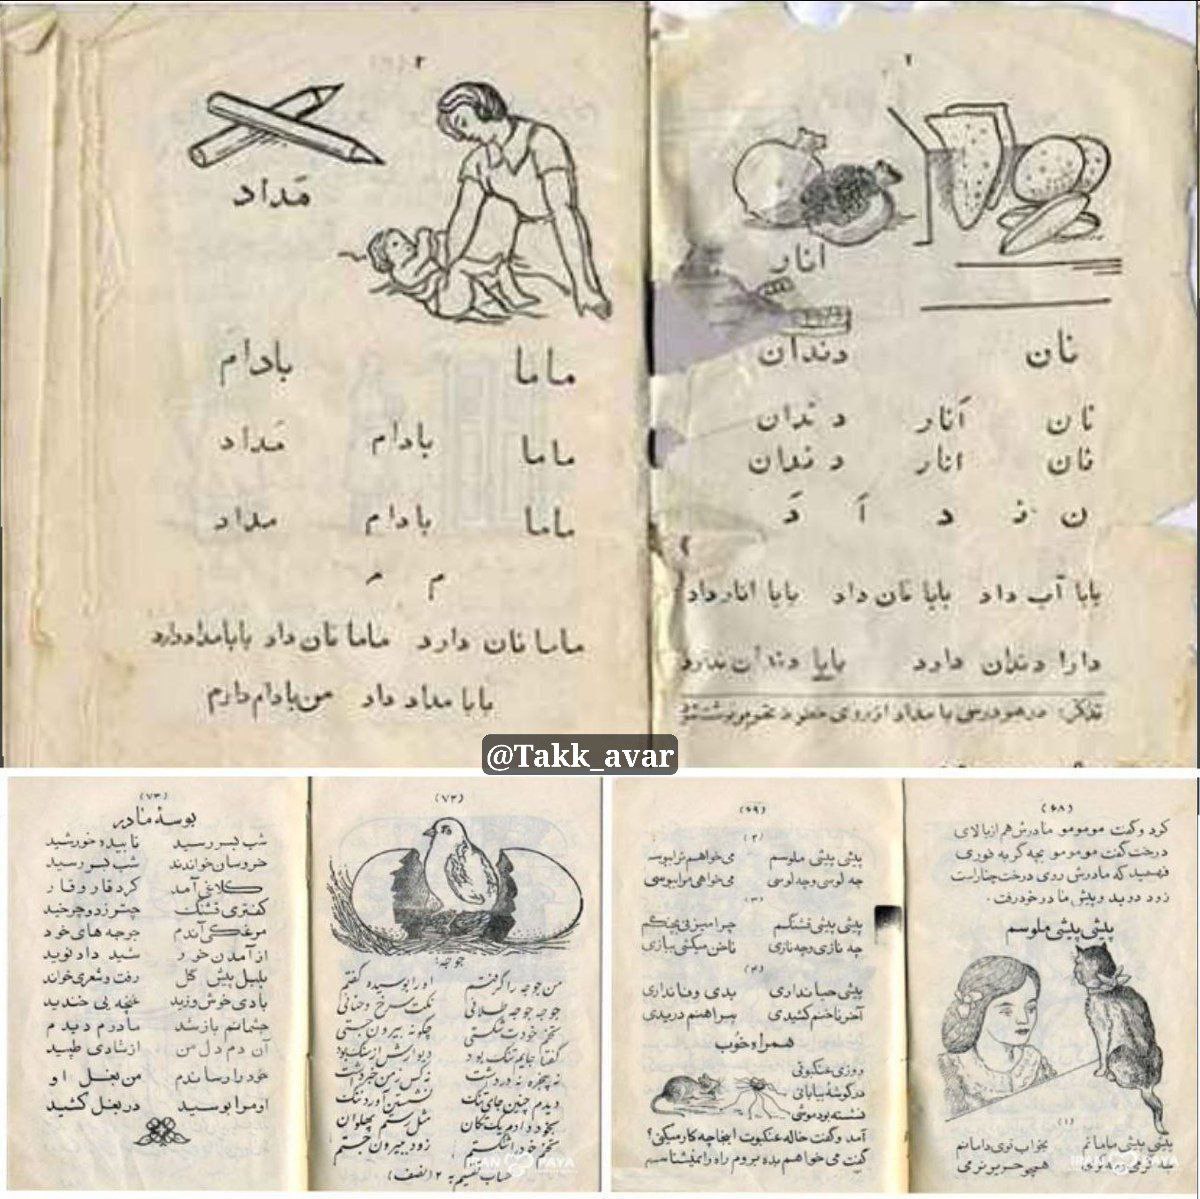 ۲
انار
نان دندان
نان اَنار دندان
نان انار دندان
ن نـ د اَ دَ
بابا آب داد بابا نان داد بابا انار داد
دارا دندان دارد بابا دندان ندارد
تذکر: در هر درسی با مداد از روی خطوط
۳
مَداد
ماما بادام
ماما بادام مَداد
ماما بادام مداد
م مـ
ماما نان دارد ماما نان داد بابا مداد دارد
بابا مداد داد من بادام دارم
@Takk_avar
(۶۸)
کرد و گفت مومومو مادرش هم از بالای
درخت گفت مومومو بچه گربه فوری
فهمید که مادرش روی درخت چنار است
زود دوید و پیش مادر خود رفت.
پیشی پیشی ملوسم
(۱)
پیشی پیشی مامانم بخواب توی دامانم
همچو حریر نرمی
(۶۹)
(۲)
پیشی پیشی ملوسم می‌خواهم ترا ببوسم
چه لوسی و چه لوسی می‌خواهی مرا ببوسی
(۳)
پیشی پیشی قشنگم چرا میزنی چنگم
چه نازی و چه نازی ناخن میکنی بیازی
(۴)
پیشی حیا نداری بدی وفا نداری
آخر ناخنم کشیدی پیراهنم دریدی
همراه خوب
روزی عنکبوتی
در گوشهٔ بیابانی
نشسته بود موشی
آمد و گفت خاله عنکبوت اینجا چه کار میکنی؟
گفت می‌خواهم بده بروم راه را نمیشناسم
(۷۲)
جوجه:
من جوجه را گرفتم او را بوسیده گفتم
جوجه جوجه طلائی نکت سرخ و حنائی
تخم خودت شکستی چگونه بیرون جستی
گفتا جایم تنگ بود دیوارش از سنگ بود
نه پنجره نه در داشت نه کس ز من خبر داشت
دیدم چنین جای تنگ نشستن آورد ننگ
بخود دادم یک تکان مثل رستم پهلوان
تخم خود را شکستم زود بیرون جستم
حساب تقسیم به ۲ (نصف)
(۷۳)
بوسهٔ مادر
شب بسر رسید تابیده خورشید
خروسان خواندند شب بسر رسید
کلاغی آمد کرد قار و قار
کفتری قشنگ چتر زد و چرخید
مرغکی آندم جوجه های خود
از آمدن خور شید داد نوید
بلبل پیش گل رفت و شعری خواند
بادی خوش وزید غنچه یی خندید
چشمانم باز شد مادرم دیدم
آن دم دل من از شادی طپید
خود را رساندم من بغل او
او مرا بوسید در بغل کشید
IRAN PAYA
IRAN PAYA